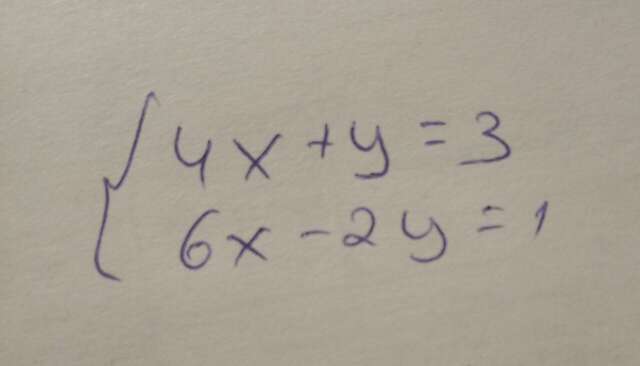 4x + y = 3
6x - 2y = 1